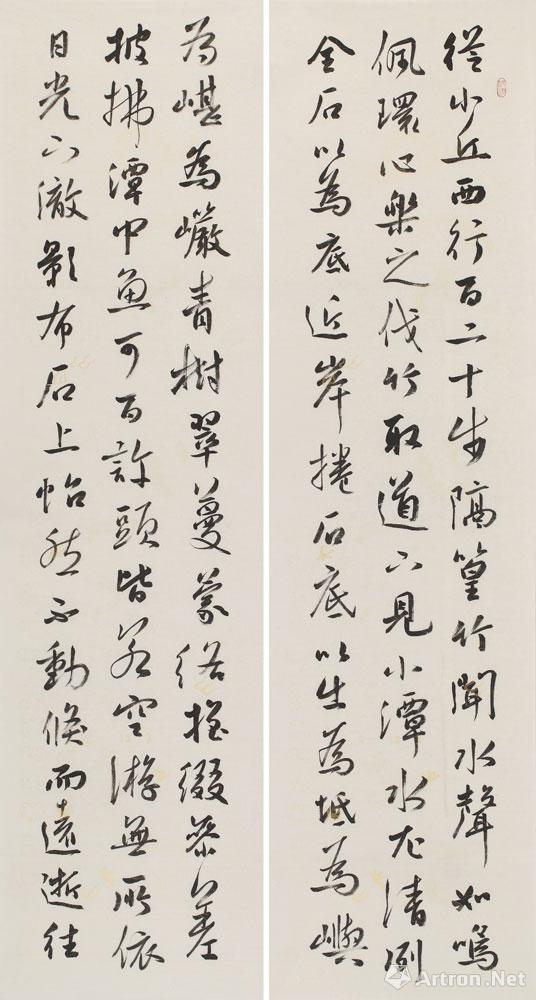 從小丘西行百二十步隔篁竹聞水聲如鳴
佩環心樂之伐竹取道下見小潭水尤清冽
全石以為底近岸捲石底以出為坻為嶼
為嵁為巖青樹翠蔓蒙絡搖綴參差
披拂潭中魚可百許頭皆若空游無所依
日光下澈影布石上怡然不動俶而遠逝往
Artron.Net